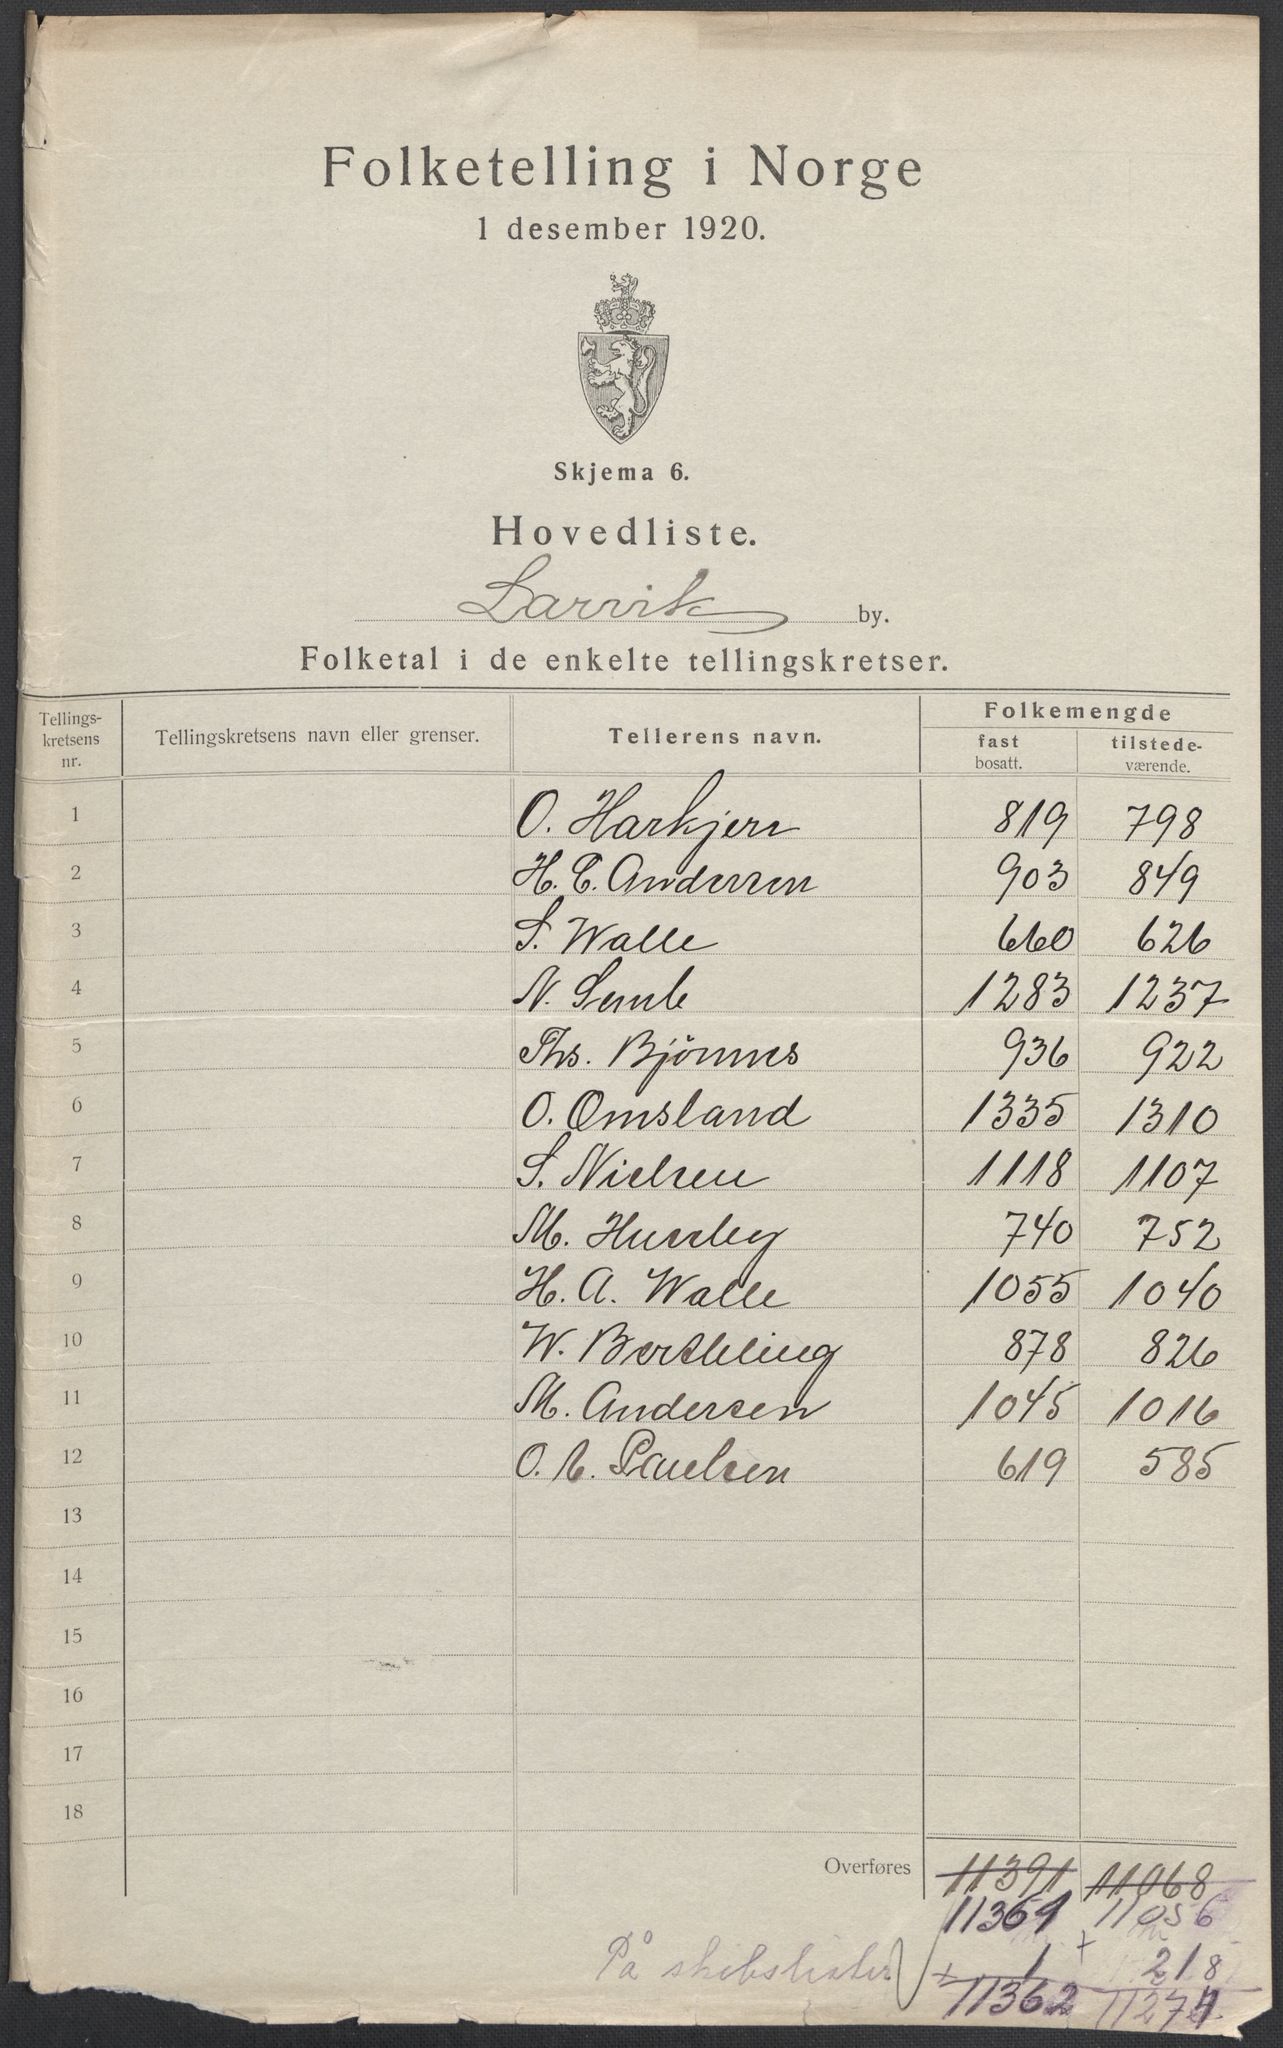 Folketelling i Norge
1 desember 1920.
Skjema 6.
Hovedliste.
Larvik by.
Folketal i de enkelte tellingskretser.
Tellings-kretsens nr. Tellingskretsens navn eller grenser. Tellerens navn. Folkemengde
fast bosatt. tilstede-værende.
1 O. Harkjerr 819 798
2 H. C. Anderssen 903 849
3 S. Walle 660 626
4 N. Semb 1283 1237
5 Ths. Bjönnes 936 922
6 O. Omsland 1335 1310
7 S. Nielsen 1118 1107
8 M. Huseby 740 752
9 H. A. Walle 1055 1040
10 W. Berthling 878 826
11 M. Andersen 1045 1016
12 O. C. Paulsen 619 585
13
14
15
16
17
18
Overføres 11391 11068
11361 11056
På skibslister + 1 + 218
11362 11274